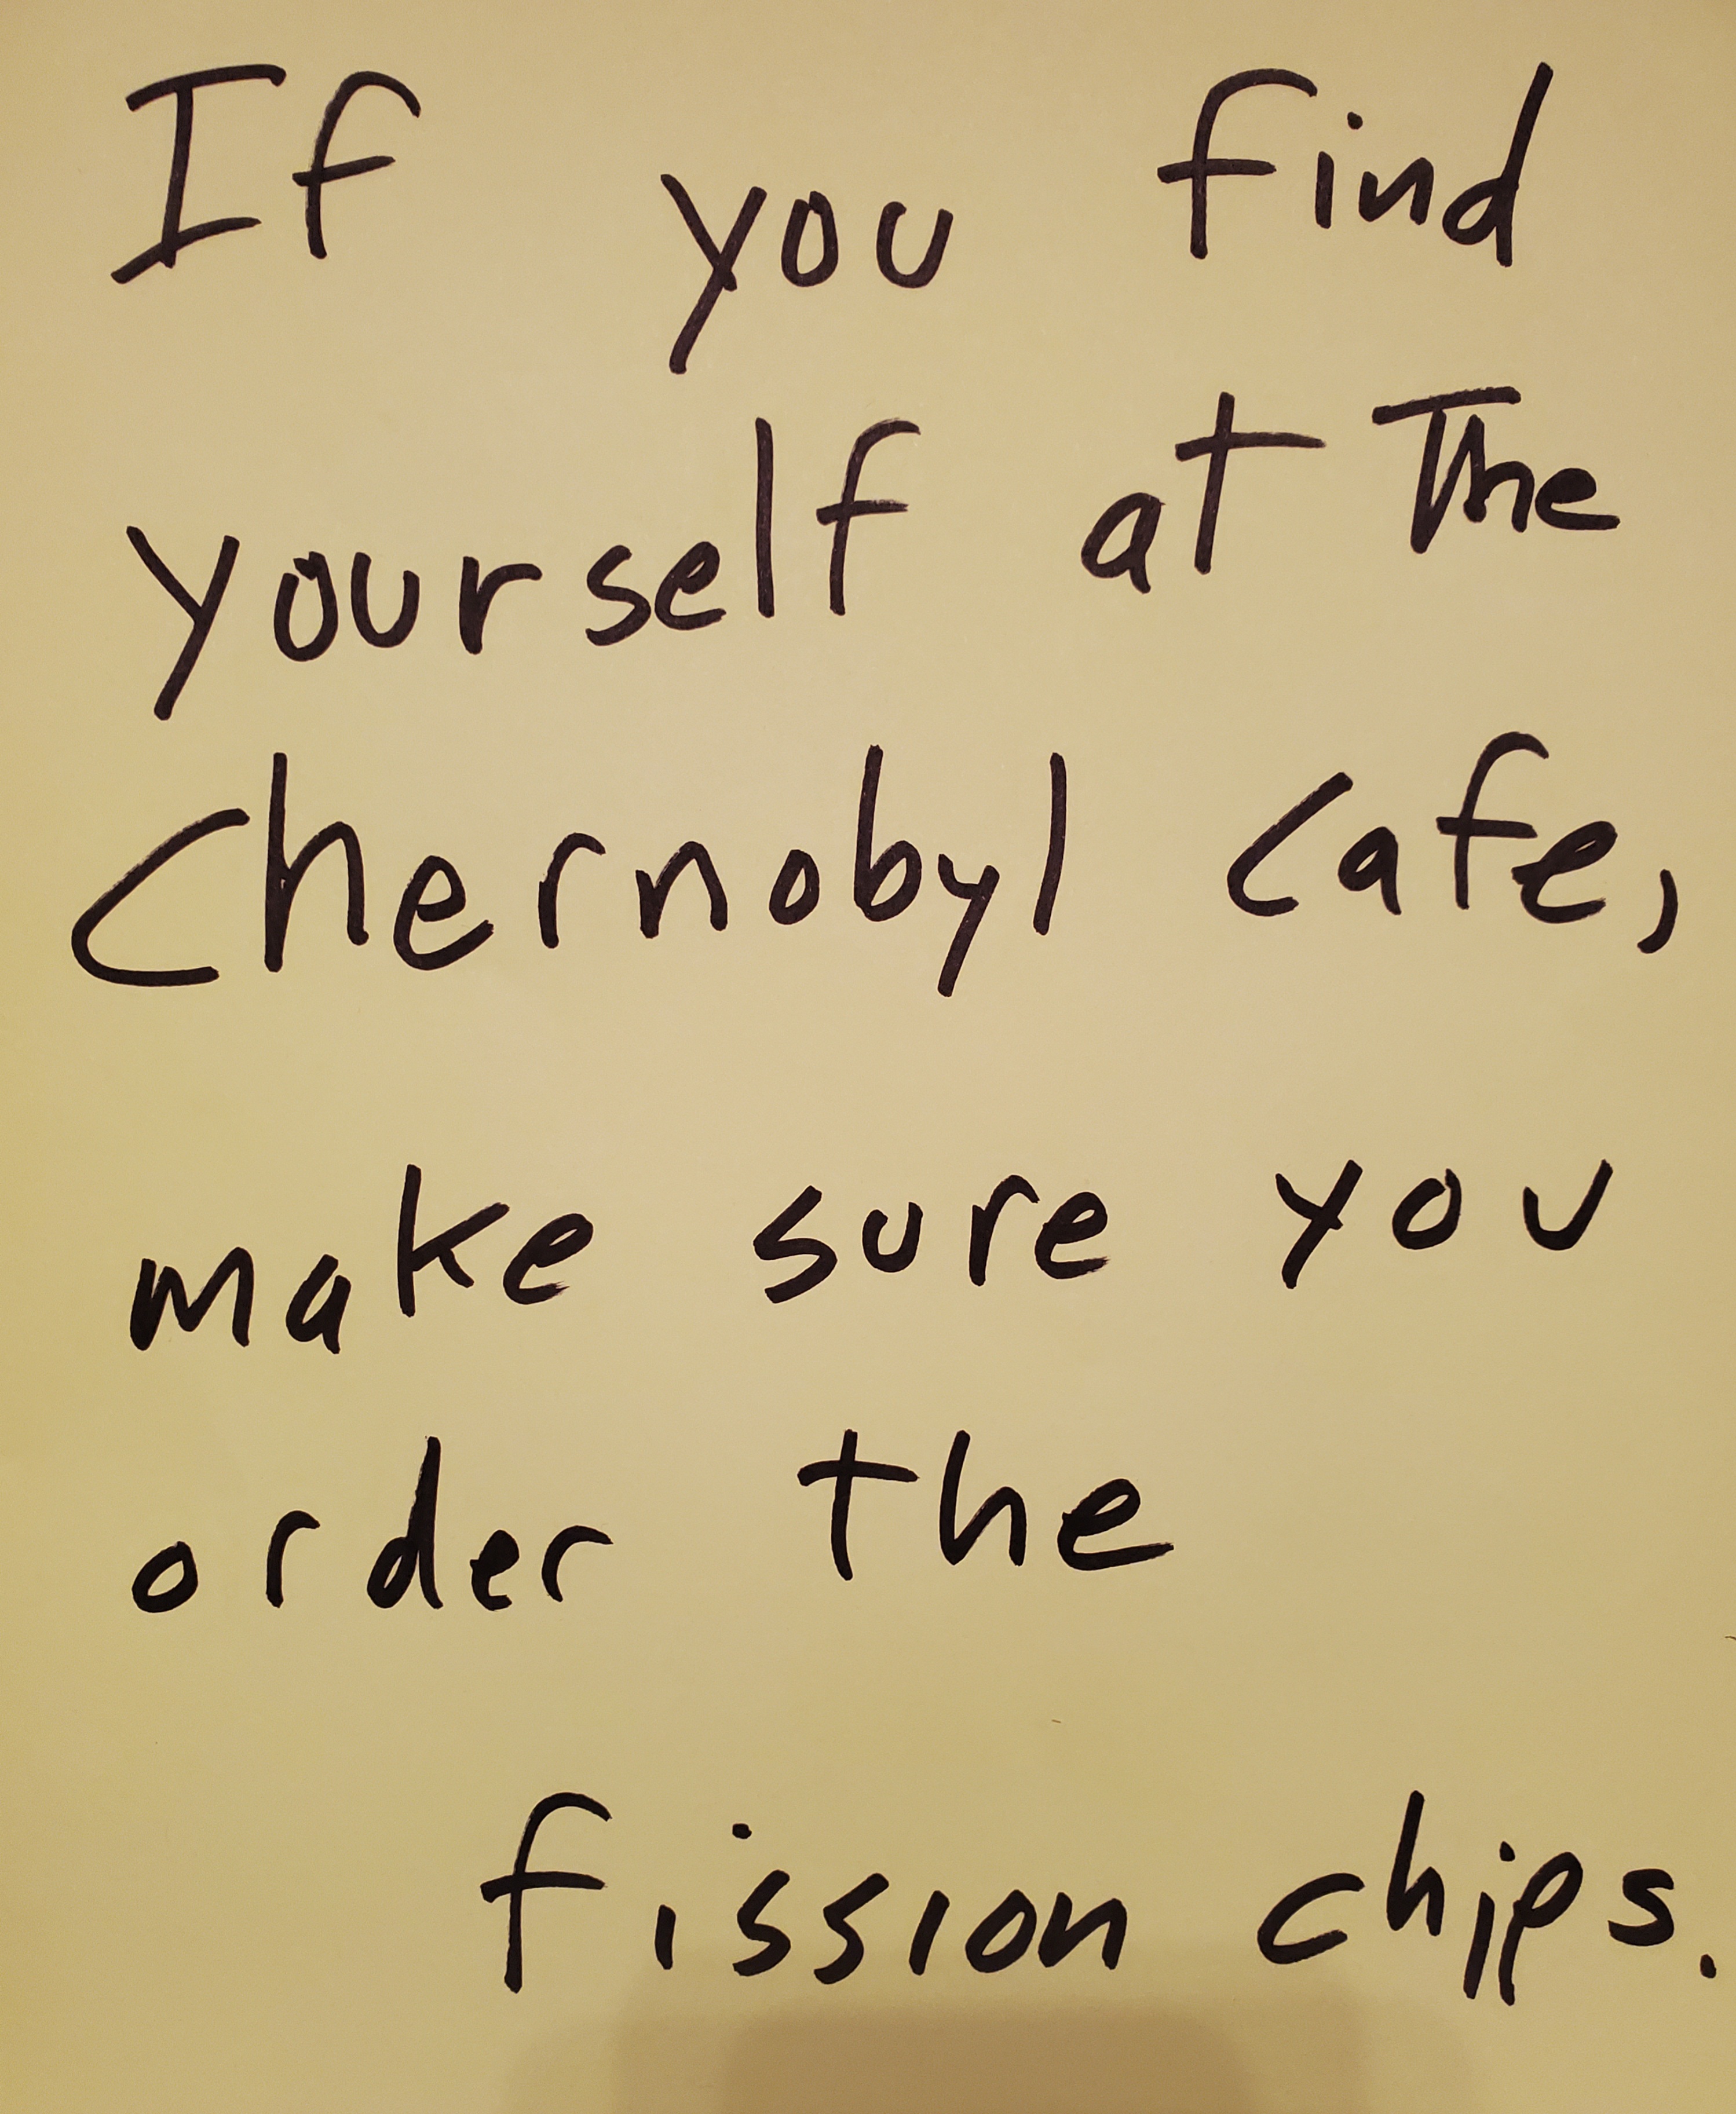 If you find
yourself at The
Chernobyl Cafe,
make sure you
order the
fission chips.